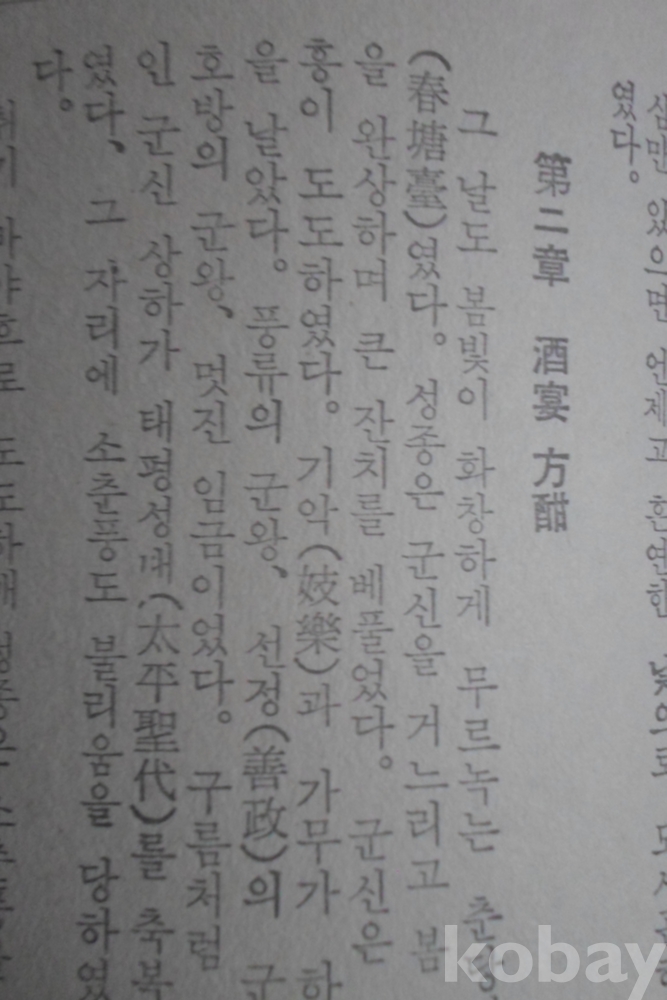 있으면 언제고
였다。
第二章 酒宴 方酣
그 날도 봄빛이 화창하게 무르녹는 춘당
(春塘臺)였다。 성종은 군신을 거느리고 봄
을 완상하며 큰 잔치를 베풀었다。 군신은
흥이 도도하였다。 기악(妓樂)과 가무가 하
을 날았다。 풍류의 군왕、 선정(善政)의 군
호방의 군왕、 멋진 임금이었다。 구름처럼
인 군신 상하가 태평성대(太平聖代)를 축복
였다、 그 자리에 소춘풍도 불리움을 당하였
다。
kobay